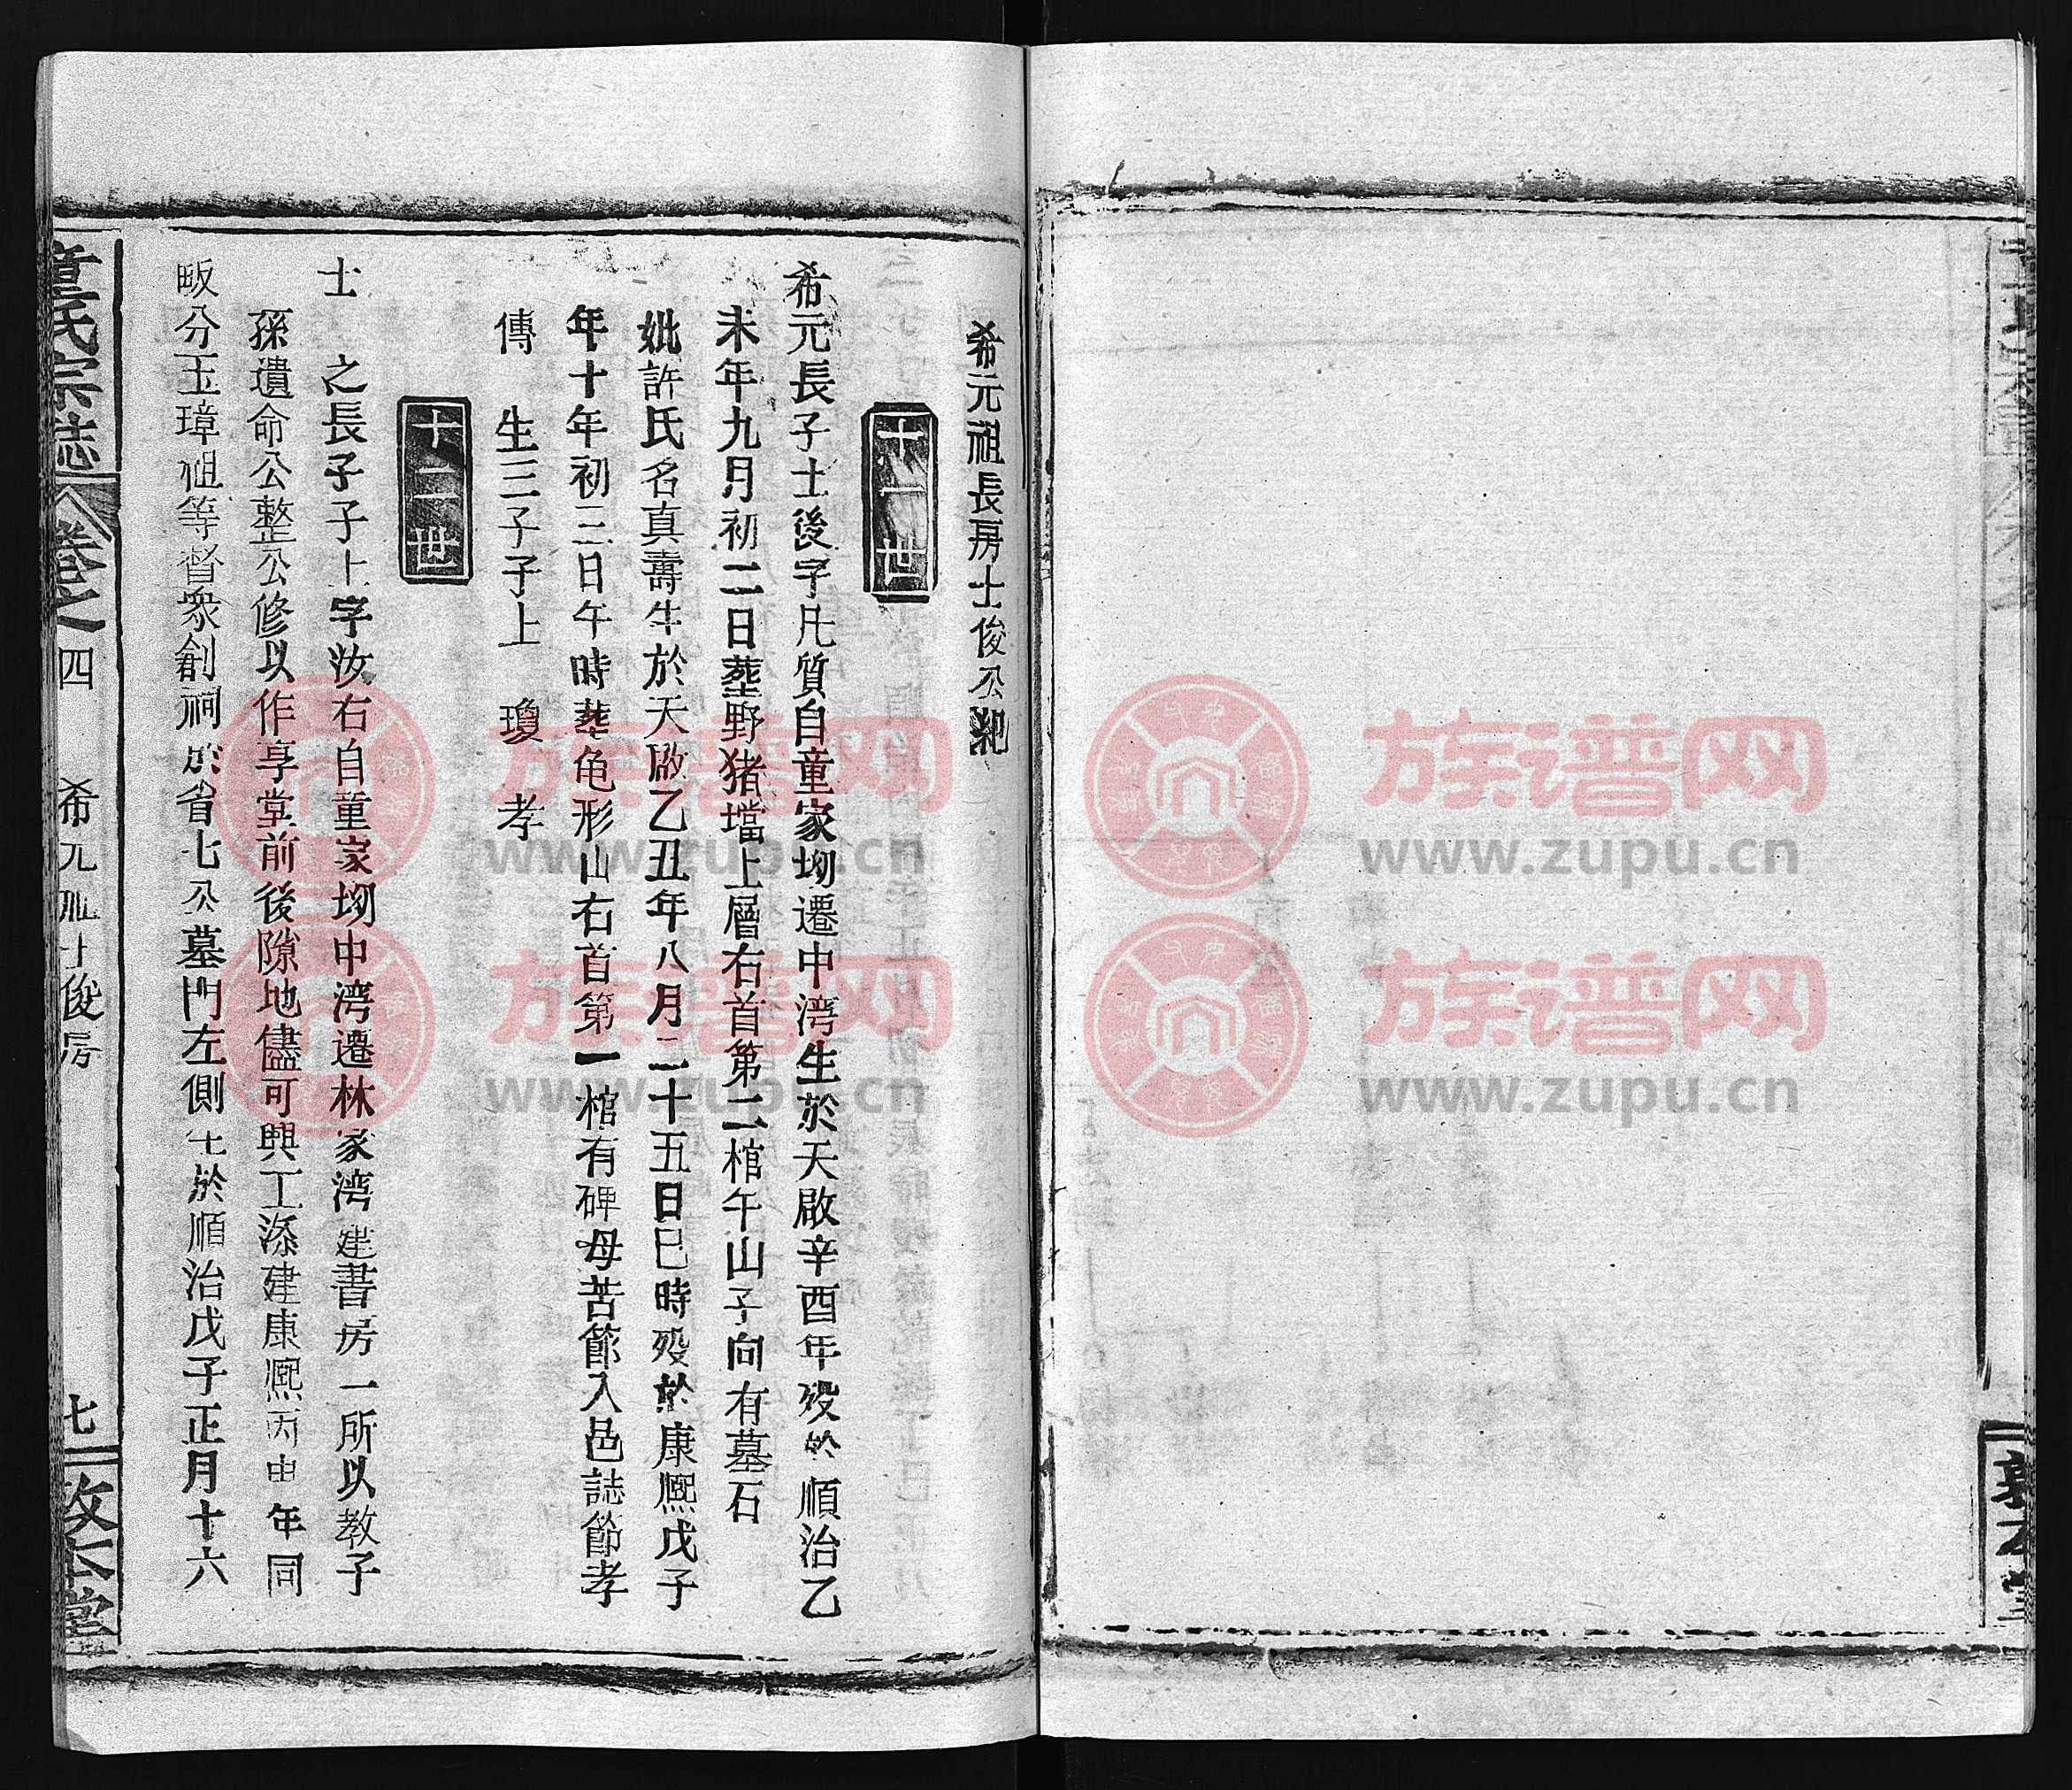 希元祖長房士俊公紀
十一世
希元長子士後字凡質自童家坳遷中湾生於天啟辛酉年歿於順治乙
未年九月初二日塟野猪壋上層右首第二棺午山子向有墓石
妣許氏名真壽生於天啟乙丑年八月二十五日巳時歿於康熈戊子
年十年初三日午時塟龟形山右首第一棺有碑母苦節入邑誌節孝
傳　生三子子上　瓊　孝
十二世
士　之長子子上字汝右自童家坳中湾遷林家湾建書房一所以教子
孫遺命公整公修以作享堂前後隙地儘可興工添建康熈丙申年同
畈分玉璋祖等督衆創祠於省七公墓門左側生於順治戊子正月十六
童氏宗誌　卷之四　希元祖士俊房　七　敦本堂
族谱网
www.zupu.cn
族谱网
www.zupu.cn
族谱网
www.zupu.cn
族谱网
www.zupu.cn